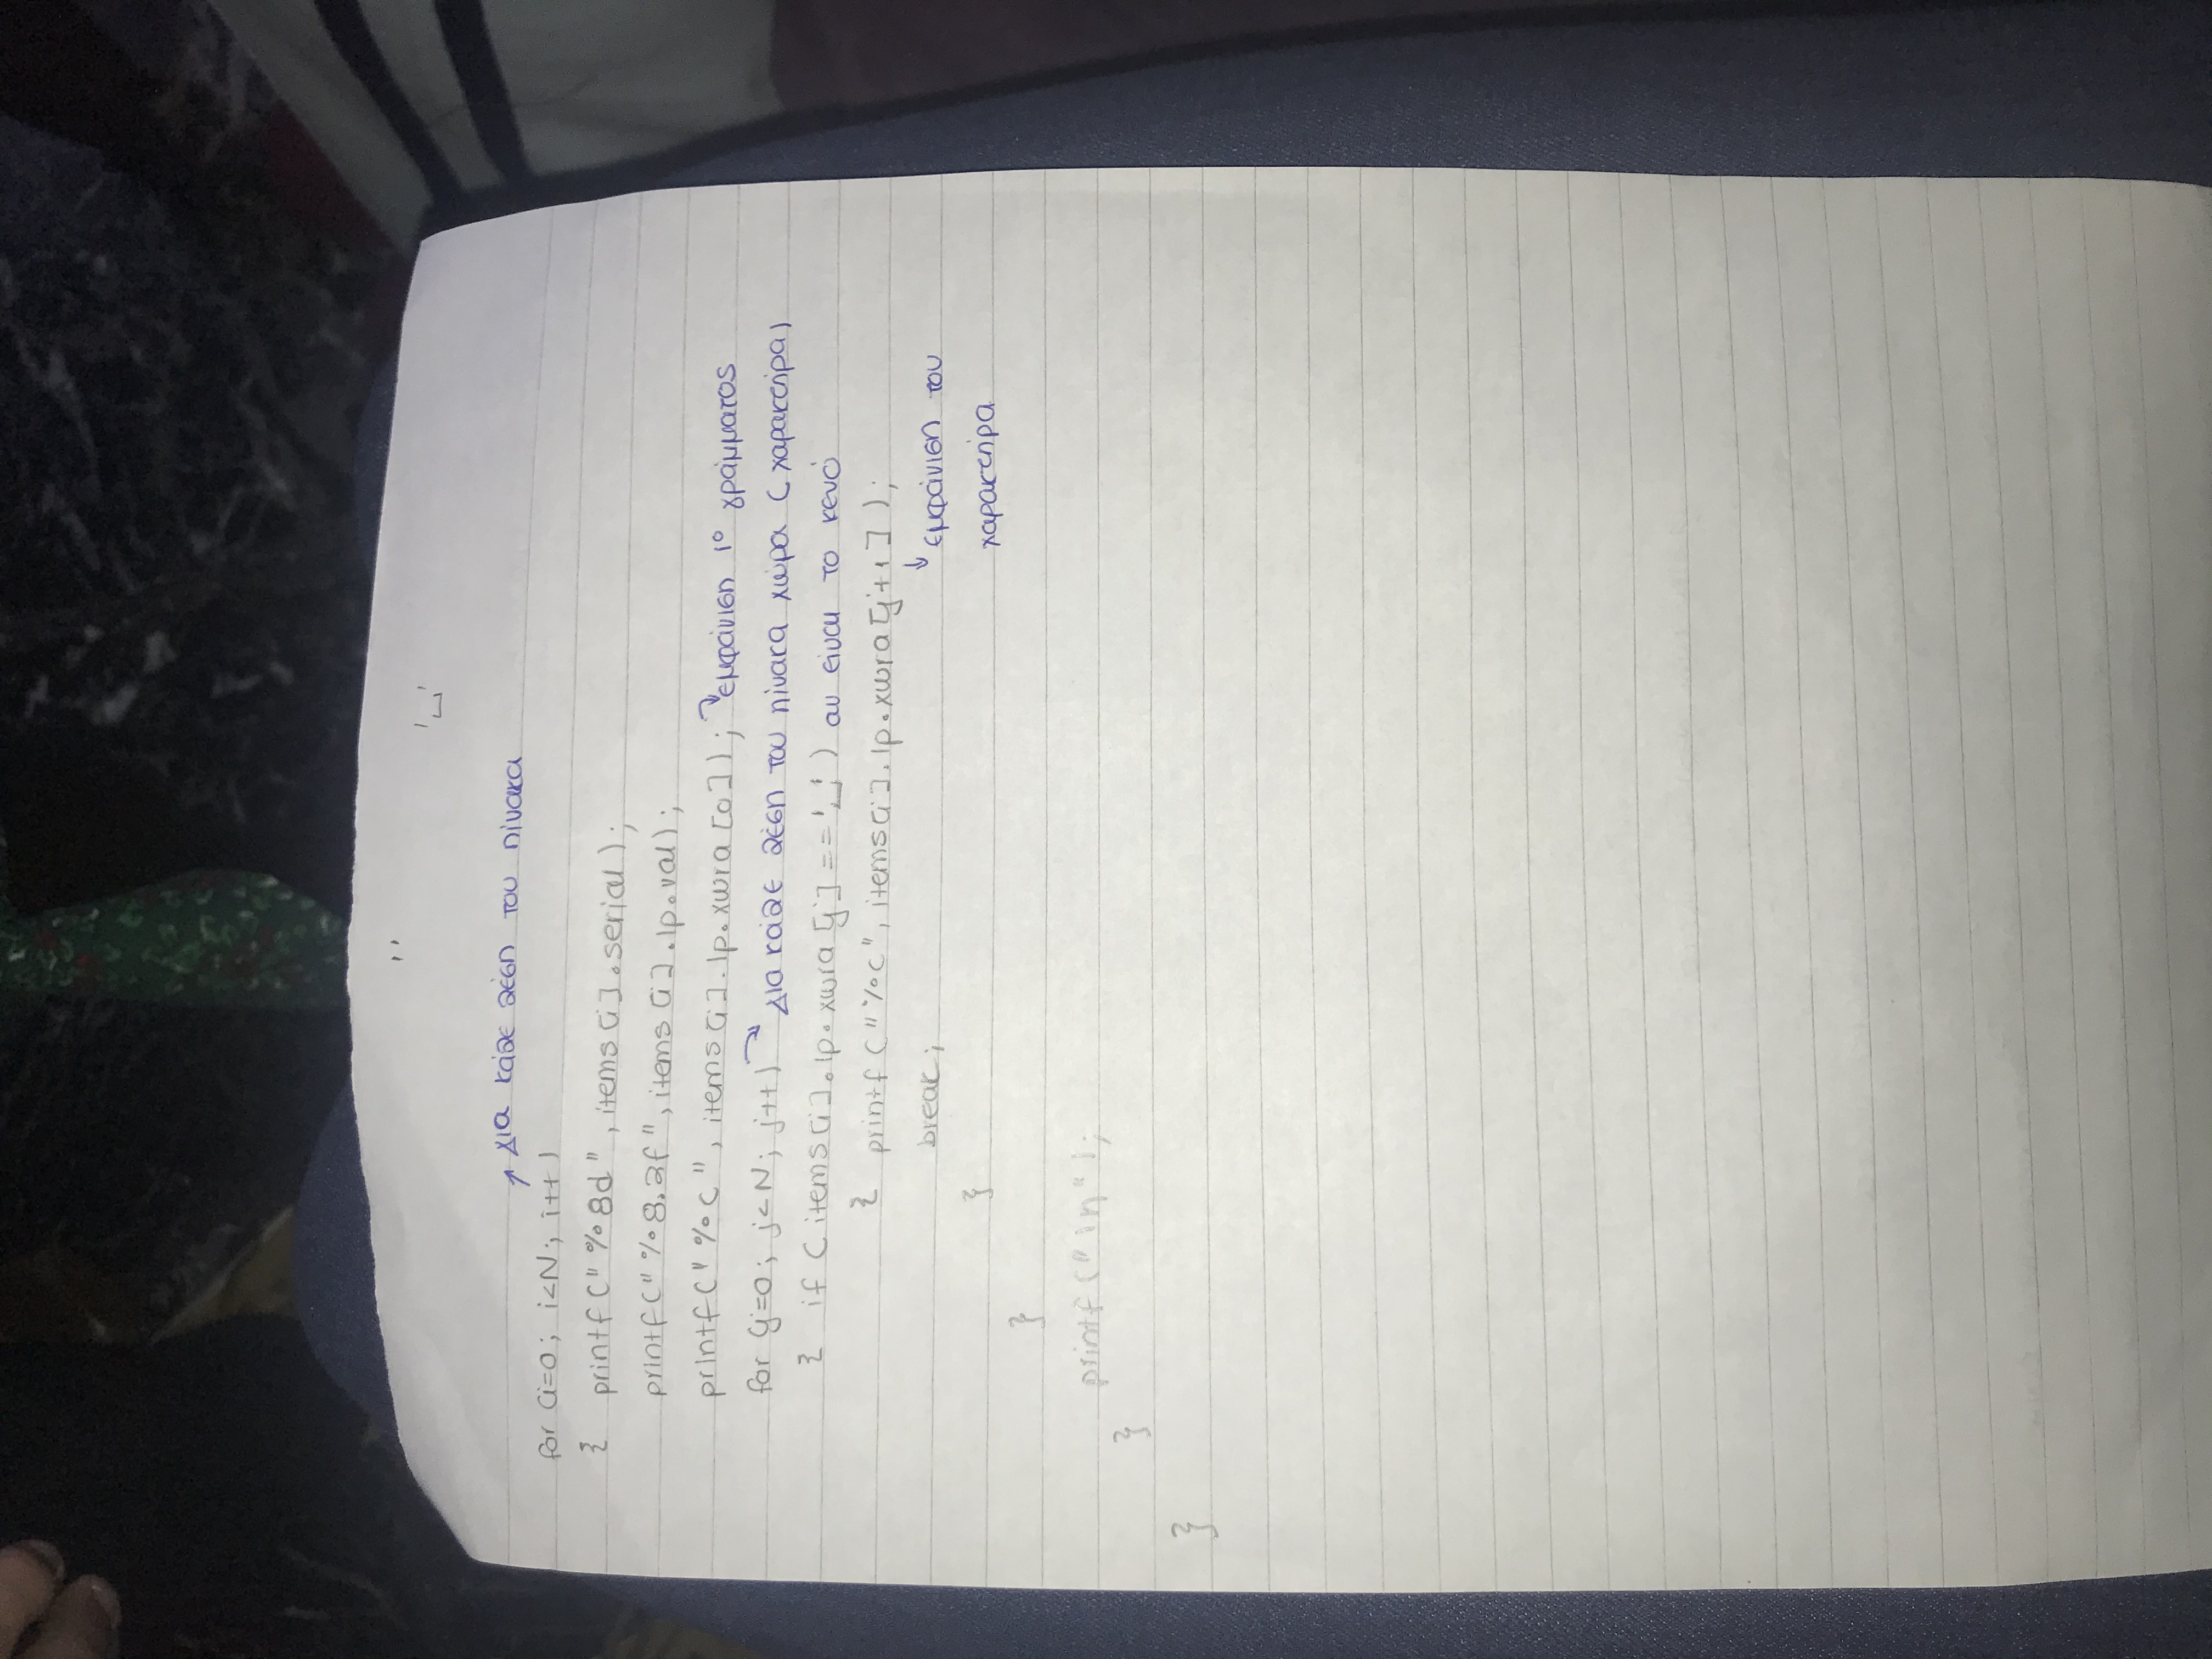 ' '
'⎵'
Για κάθε θέση του πίνακα
for (i=0; i<N; i++)
{ printf("%8d", items[i].serial);
printf("%8.2f", items[i].lp.val);
printf("%c", items[i].lp.xwra[0]); εμφάνιση 1º γράμματος
for (j=0; j<N; j++) Για κάθε θέση του πίνακα χώρα (χαρακτήρα)
{ if (items[i].lp.xwra[j]=='⎵') αν είναι το κενό
{ printf("%c", items[i].lp.xwra[j+1]);
break; εμφάνιση του
} χαρακτήρα
}
printf("\n");
}
}